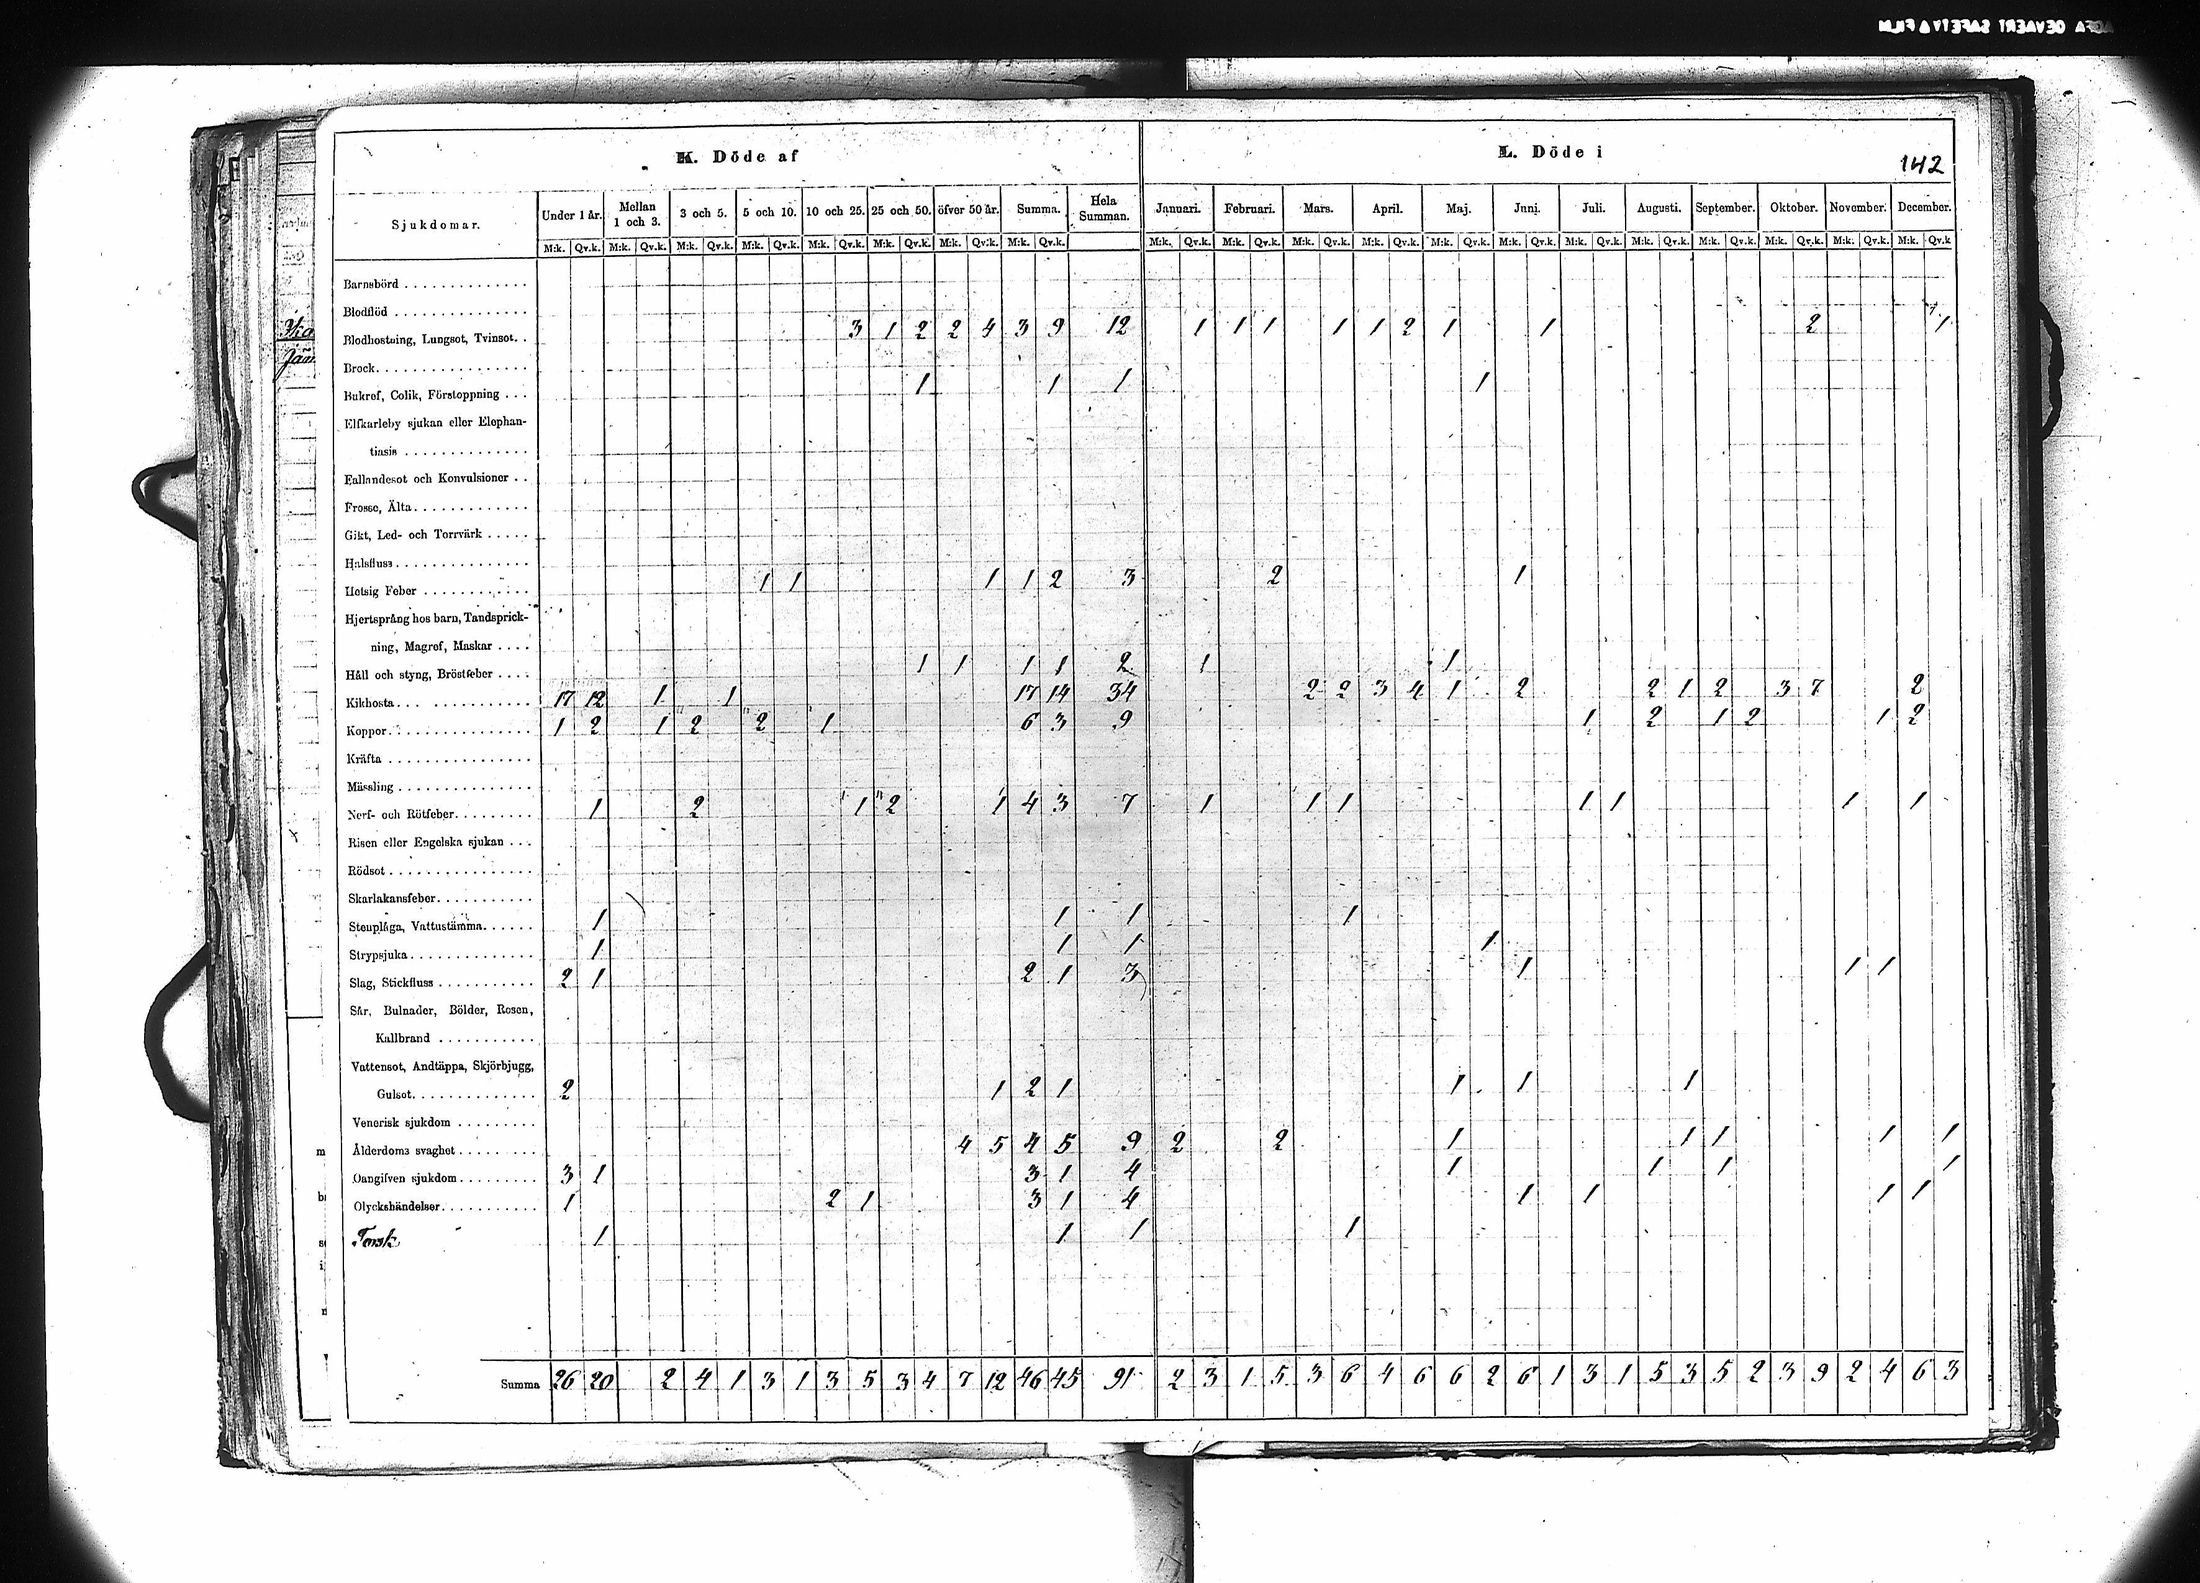 AGFA GEVAERT SAFETY FILM
K. Döde af
L. Döde i
142
Sjukdomar. Under 1 år. Mellan 1 och 3. 3 och 5. 5 och 10. 10 och 25. 25 och 50. öfver 50 år. Summa. Hela Summan. Januari. Februari. Mars. April. Maj. Juni. Juli. Augusti. September. Oktober. November. December.
M:k. Qv.k. M:k. Qv.k. M:k. Qv.k. M:k. Qv.k. M:k. Qv.k. M:k. Qv.k. M:k. Qv.k. M:k. Qv.k. M:k. Qv.k. M:k. Qv.k. M:k. Qv.k. M:k. Qv.k. M:k. Qv.k. M:k. Qv.k. M:k. Qv.k. M:k. Qv.k. M:k. Qv.k. M:k. Qv.k. M:k. Qv.k. M:k. Qv.k
Barnsbörd
Blodflöd
Blodhostning, Lungsot, Tvinsot. 3 1 2 2 4 3 9 12 1 1 1 1 1 2 1 1 2 1
Brock
Bukref, Colik, Förstoppning 1 1 1 1
Elfkarleby sjukan eller Elephan-
tiasis
Fallandesot och Konvulsioner
Frosse, Älta
Gikt, Led- och Torrvärk
Halsfluss
Hetsig Feber 1 1 1 1 2 3 2 1
Hjertsprång hos barn, Tandsprick-
ning, Magref, Maskar
Håll och styng, Bröstfeber 1 1 1 1 2 1 1
Kikhosta 17 12 1 1 17 14 34 2 2 3 4 1 2 2 1 2 3 7 2
Koppor 1 2 1 2 2 1 6 3 9 1 2 1 2 1 2
Kräfta
Mässling
Nerf- och Rötfeber 1 2 1 2 1 4 3 7 1 1 1 1 1 1 1
Risen eller Engelska sjukan
Rödsot
Skarlakansfeber
Stenplåga, Vattustämma 1 1 1 1
Strypsjuka 1 1 1 1
Slag, Stickfluss 2 1 2 1 3 1 1 1
Sår, Bulnader, Bölder, Rosen,
Kallbrand
Vattensot, Andtäppa, Skjörbjugg,
Gulsot 2 1 2 1 1 1 1
Venerisk sjukdom
Ålderdoms svaghet 4 5 4 5 9 2 2 1 1 1 1 1
Oangifven sjukdom 3 1 3 1 4 1 1 1 1
Olyckshändelser 1 2 1 3 1 4 1 1 1 1
Torsk 1 1 1 1
Summa 26 20 2 4 1 3 1 3 5 3 4 7 12 46 45 91 2 3 1 5 3 6 4 6 6 2 6 1 3 1 5 3 5 2 3 9 2 4 6 3